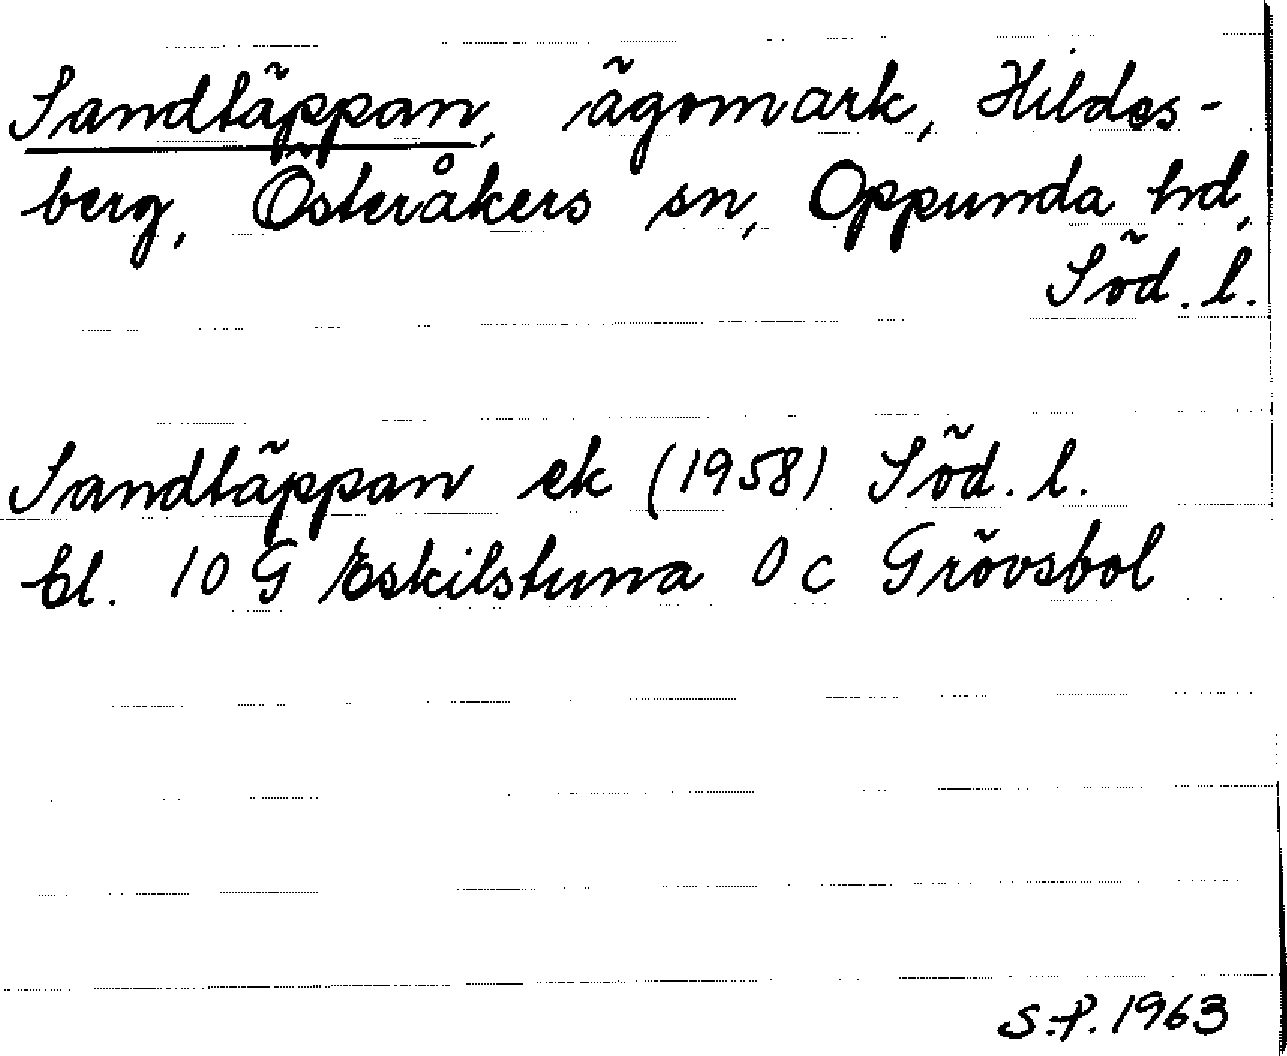 Sandtäppan, ägomark, Hildes-
berg, Österåkers sn, Oppunda hd,
Söd. l.
Sandtäppan ek (1958) Söd. l.
bl. 10 G Eskilstuna 0 c Grövsbol
S.P. 1963